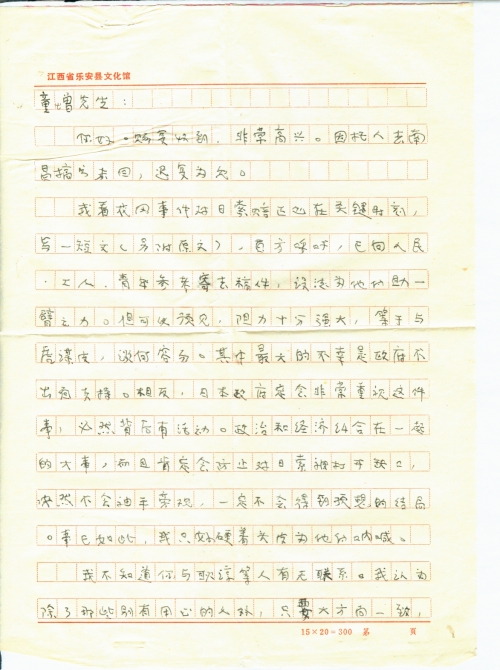 江西省乐安县文化馆
童增先生：
你好。赐复收到，非常高兴。因托人去南
昌搞书未回，迟复为欠。
我看花冈事件对日索赔正处在关键时刻，
写一短文（另附原文），更予呼吁，已向人民
·工人、青年参考寄去稿件，设法为他们助一
臂之力。但可以预见，阻力十分强大，等于与
虎谋皮，谈何容易。其中最大的不幸是政府不
出面支持。相反，日本政府定会非常重视这件
事，必然背后有活动。政治和经济纠合在一起
的大事，而且肯定会防止对日索赔打开缺口，
决然不会袖手旁观，一定不会得到预想的结局
。事已如此，我只好硬着头皮为他们呐喊。
我不知道你与耿谆等人有无联系。我认为
除了那些别有用心的人外，只要大方向一致，
15×20=300 第 页